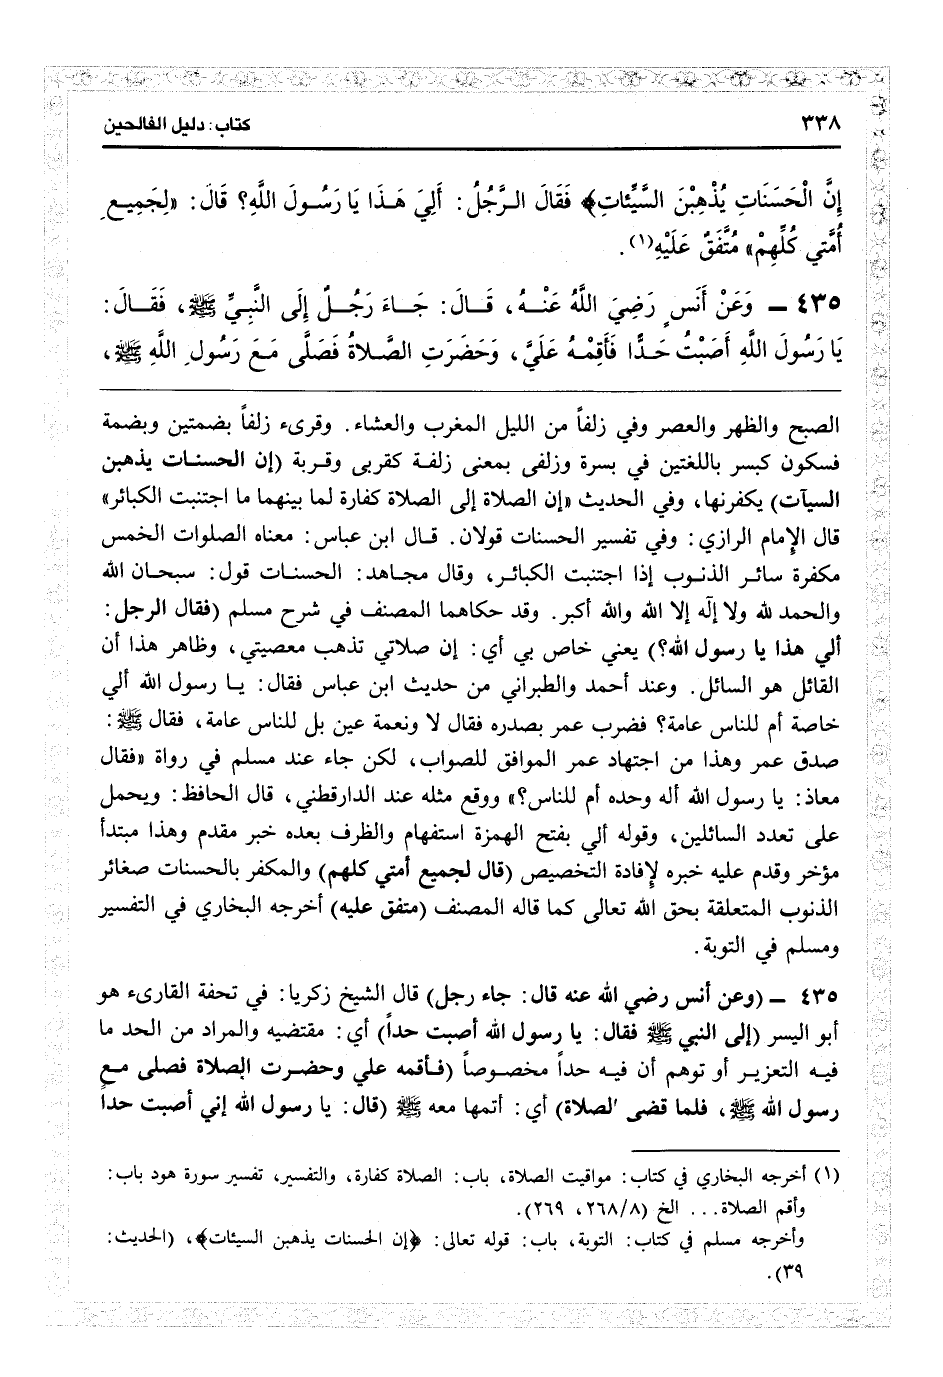 ٣٣٨ كتاب: دليل الفالحين
إِنَّ الْحَسَنَاتِ يُذْهِبْنَ السَّيِّئَاتِ﴾ فَقَالَ الرَّجُلُ: أَلِيَ هَذَا يَا رَسُولَ اللَّهِ؟ قَالَ: «لِجَمِيعِ
أُمَّتِي كُلِّهِمْ» مُتَّفَقٌ عَلَيْهِ(١).
٤٣٥ ـ وَعَنْ أَنَسٍ رَضِيَ اللَّهُ عَنْهُ، قَالَ: جَاءَ رَجُلٌ إِلَى النَّبِيِّ ﷺ، فَقَالَ:
يَا رَسُولَ اللَّهِ أَصَبْتُ حَدًّا فَأَقِمْهُ عَلَيَّ، وَحَضَرَتِ الصَّلاةُ فَصَلَّى مَعَ رَسُولِ اللَّهِ ﷺ،
الصبح والظهر والعصر وفي زلفاً من الليل المغرب والعشاء. وقرىء زلفاً بضمتين وبضمة
فسكون كبسر باللغتين في بسرة وزلفى بمعنى زلفة كقربى وقربة (إن الحسنات يذهبن
السيآت) يكفرنها، وفي الحديث «إن الصلاة إلى الصلاة كفارة لما بينهما ما اجتنبت الكبائر»
قال الإمام الرازي: وفي تفسير الحسنات قولان. قال ابن عباس: معناه الصلوات الخمس
مكفرة سائر الذنوب إذا اجتنبت الكبائر، وقال مجاهد: الحسنات قول: سبحان الله
والحمد لله ولا إلٰه إلا الله والله أكبر. وقد حكاهما المصنف في شرح مسلم (فقال الرجل:
ألي هذا يا رسول الله؟) يعني خاص بي أي: إن صلاتي تذهب معصيتي، وظاهر هذا أن
القائل هو السائل. وعند أحمد والطبراني من حديث ابن عباس فقال: يا رسول الله ألي
خاصة أم للناس عامة؟ فضرب عمر بصدره فقال لا ونعمة عين بل للناس عامة، فقال ﷺ:
صدق عمر وهذا من اجتهاد عمر الموافق للصواب، لكن جاء عند مسلم في رواة «فقال
معاذ: يا رسول الله أله وحده أم للناس؟» ووقع مثله عند الدارقطني، قال الحافظ: ويحمل
على تعدد السائلين، وقوله ألي بفتح الهمزة استفهام والظرف بعده خبر مقدم وهذا مبتدأ
مؤخر وقدم عليه خبره لإفادة التخصيص (قال لجميع أمتي كلهم) والمكفر بالحسنات صغائر
الذنوب المتعلقة بحق الله تعالى كما قاله المصنف (متفق عليه) أخرجه البخاري في التفسير
ومسلم في التوبة.
٤٣٥ ـ (وعن أنس رضي الله عنه قال: جاء رجل) قال الشيخ زكريا: في تحفة القارىء هو
أبو اليسر (إلى النبي ﷺ فقال: يا رسول الله أصبت حداً) أي: مقتضيه والمراد من الحد ما
فيه التعزير أو توهم أن فيه حداً مخصوصاً (فأقمه علي وحضرت الصلاة فصلى مع
رسول الله ﷺ، فلما قضى الصلاة) أي: أتمها معه ﷺ (قال: يا رسول الله إني أصبت حداً
(١) أخرجه البخاري في كتاب: مواقيت الصلاة، باب: الصلاة كفارة، والتفسير، تفسير سورة هود باب:
وأقم الصلاة... الخ (٢٦٨/٨، ٢٦٩).
وأخرجه مسلم في كتاب: التوبة، باب: قوله تعالى: ﴿إن الحسنات يذهبن السيئات﴾، (الحديث:
٣٩).